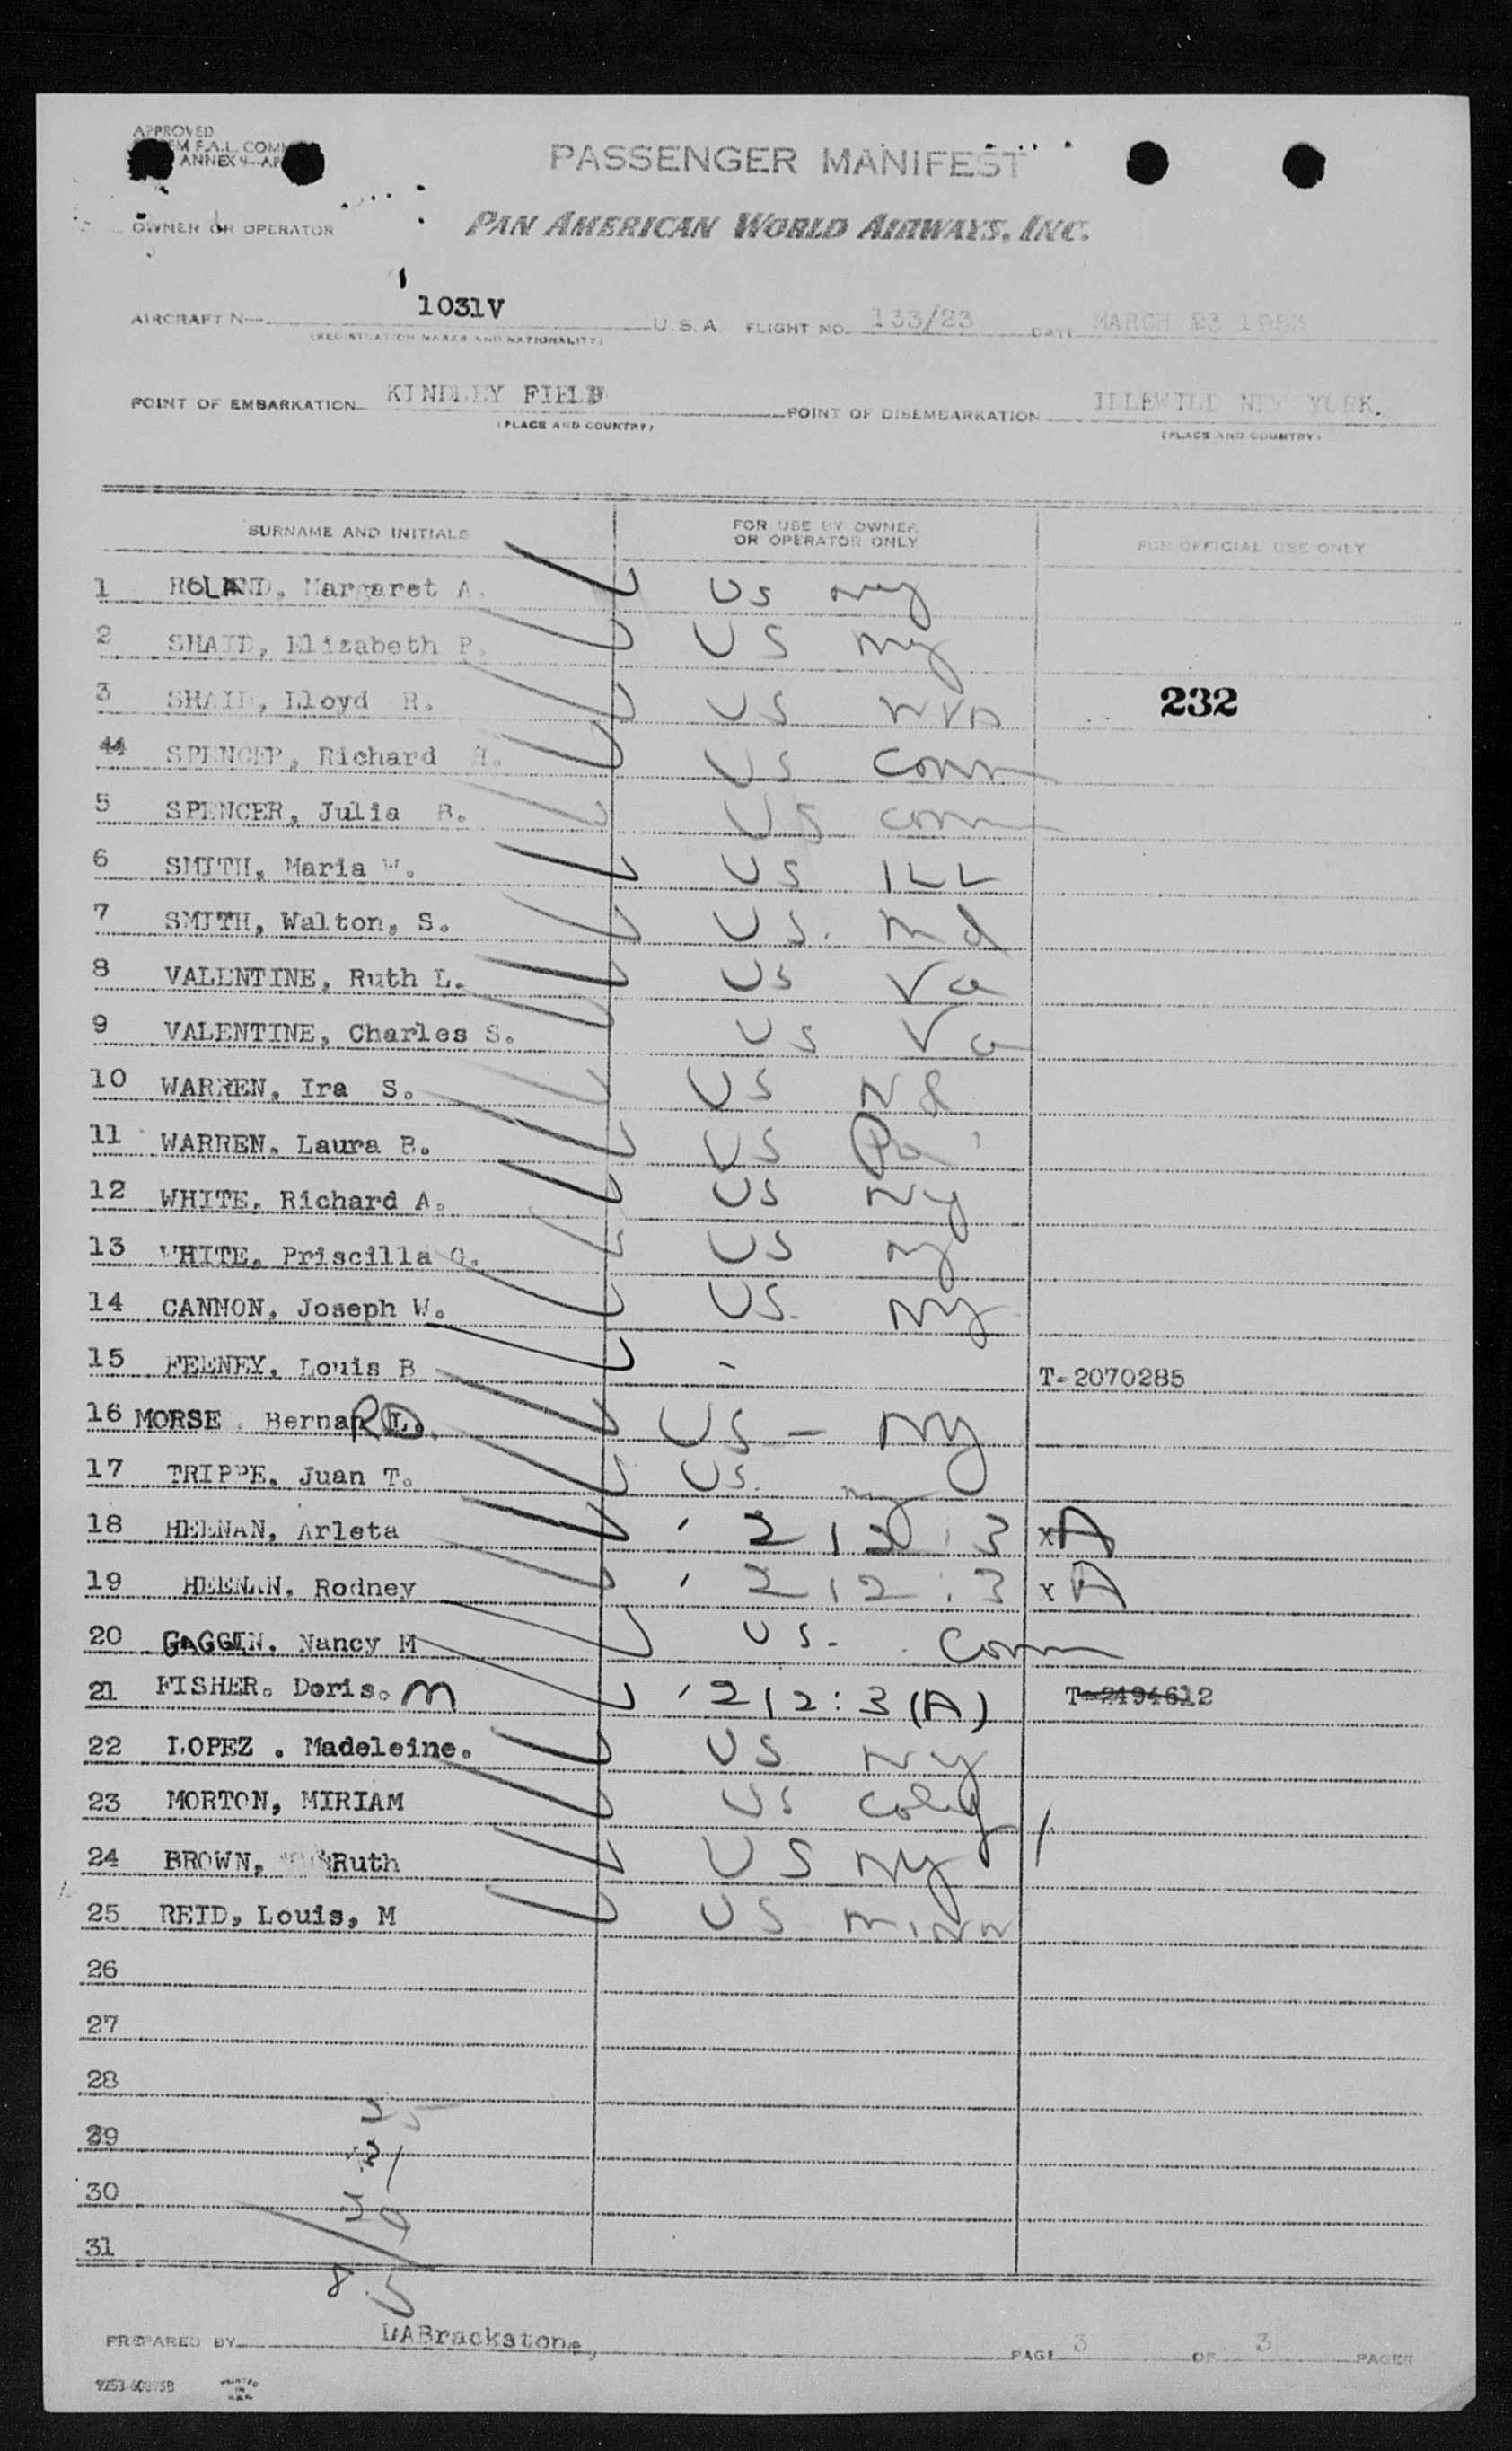 APPROVED
F.A.L. COMM
ANNEX 9-AP
PASSENGER MANIFEST
OWNER OR OPERATOR PAN AMERICAN WORLD AIRWAYS, INC.
AIRCRAFT N— 1031V U.S.A. FLIGHT NO. 133/23 DATE MARCH 23 1953
(REGISTRATION MARKS AND NATIONALITY)
POINT OF EMBARKATION KINDLEY FIELD POINT OF DISEMBARKATION IDLEWILD NEW YORK.
(PLACE AND COUNTRY) (PLACE AND COUNTRY)
SURNAME AND INITIALS FOR USE BY OWNER OR OPERATOR ONLY FOR OFFICIAL USE ONLY
1 ROLAND, Margaret A. US ny
2 SHAID, Elizabeth P. US ny
3 SHAID, Lloyd R. US 232
44 SPENCER, Richard H. US Conn
5 SPENCER, Julia B. US Conn
6 SMITH, Maria W. US ILL
7 SMITH, Walton, S. US. Md
8 VALENTINE, Ruth L. US Va
9 VALENTINE, Charles S. US Va
10 WARREN, Ira S. US
11 WARREN, Laura B. US Pa
12 WHITE, Richard A. US Ny
13 WHITE, Priscilla G. US ny
14 CANNON, Joseph W. US. Ny
15 FEENEY, Louis B - T-2070285
16 MORSE Bernard L. US - Ny
17 TRIPPE, Juan T. US. ny
18 HEENAN, Arleta 212:3 xA
19 HEENAN, Rodney 212:3 xA
20 GAGGIN, Nancy M US. Conn
21 FISHER. Doris. M 212:3(A) T-2494612
22 LOPEZ . Madeleine. US Ny
23 MORTON, MIRIAM US
24 BROWN, Ruth US Ny
25 REID, Louis, M US Minn
26
27
28
25
29
21
30
39
31
85
PREPARED BY DABrackstone, PAGE 3 OF 3 PAGES
PRINTED
IN